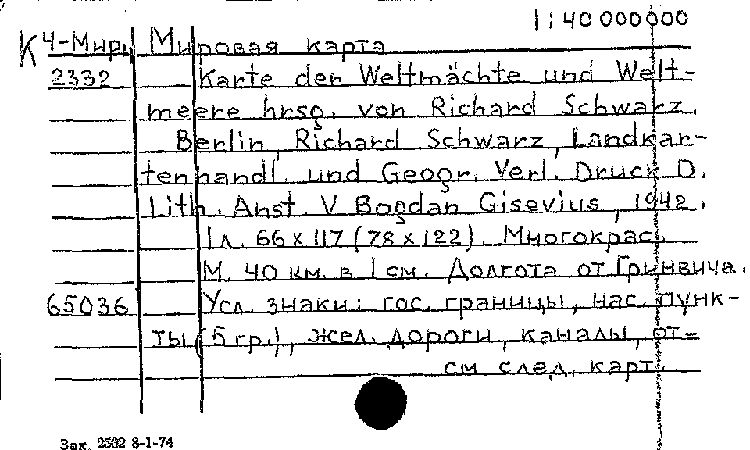 1:40 000000
К 4-Мир Мировая карта
2332 Karte der Weltmächte und Welt-
meere hrsg. von Richard Schwarz.
Berlin, Richard Schwarz, Landkar-
tenhandl. und Geogr. Verl. Druck D.
Lith. Anst. V Bogdan Gisevius, 1942.
1 л. 66 x 117 (78 x 122). Многокрас.
М. 40 км. в 1 см. Долгота от Гринвича.
65036 Усл. знаки: гос. границы, нас. пунк-
ты (5 гр.), жел. дороги, каналы, от-
см след. карт.
Зак. 2332 8-1-74